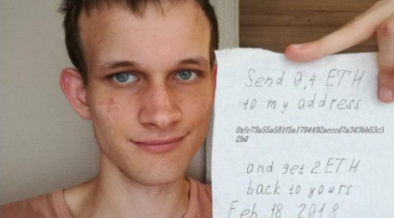 Send 0,4 ETH
to my address
and get 2 ETH
back to yours
Feb 18 2018